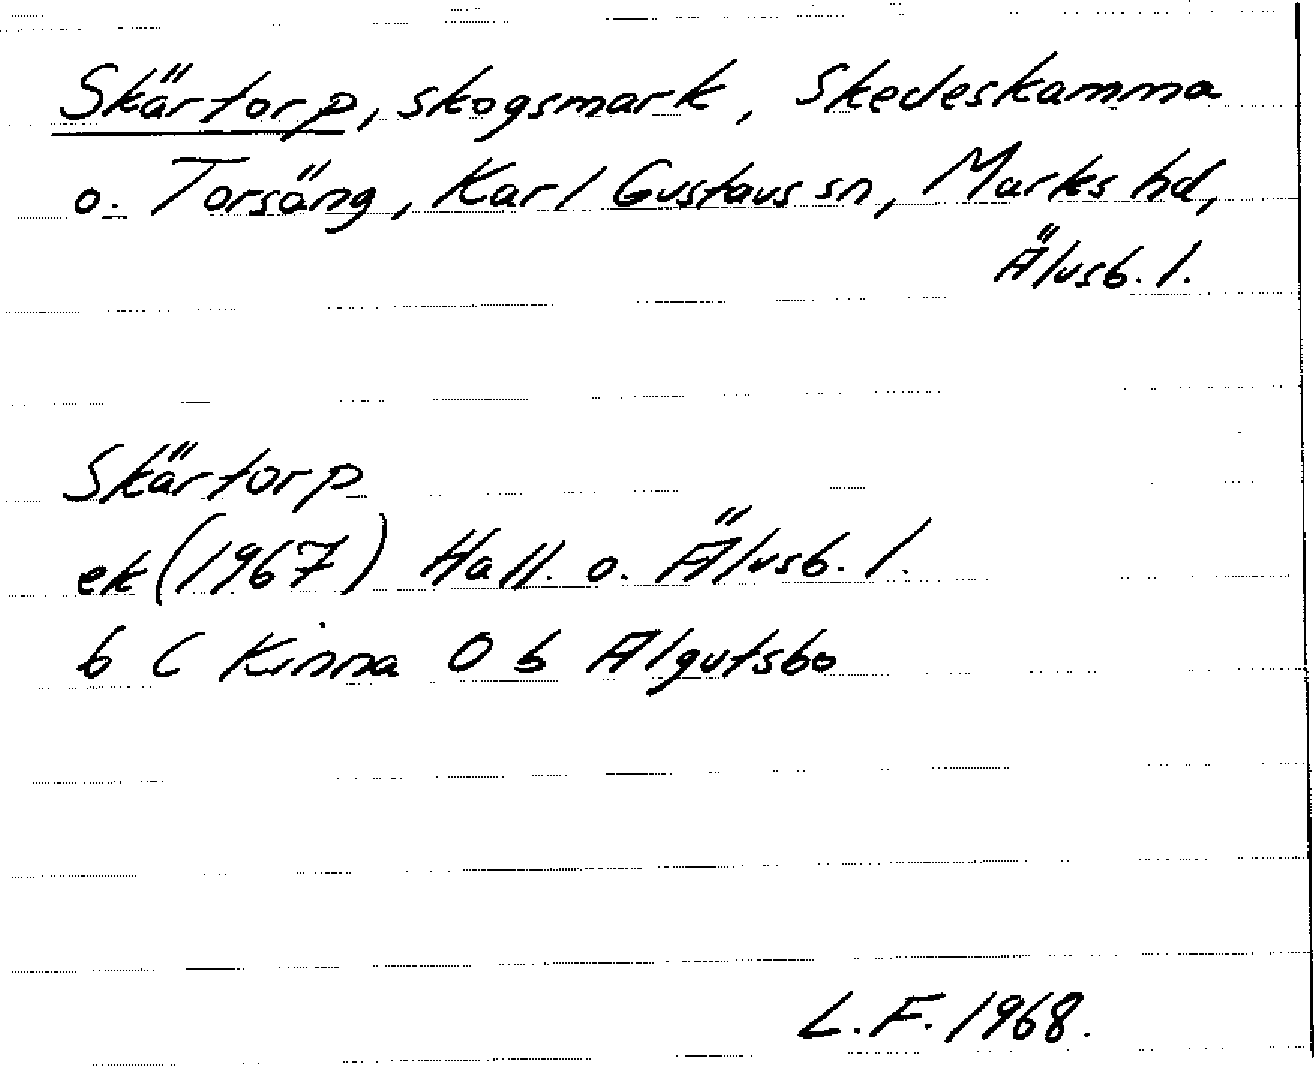 Skärtorp, skogsmark, Skedeskamma
o. Torsäng, Karl Gustavs sn, Marks hd,
Älvsb. l.
Skärtorp
ek (1967) Hall. o. Älvsb. l.
6 C Kinna 0 b Algutsbo
L.F. 1968.